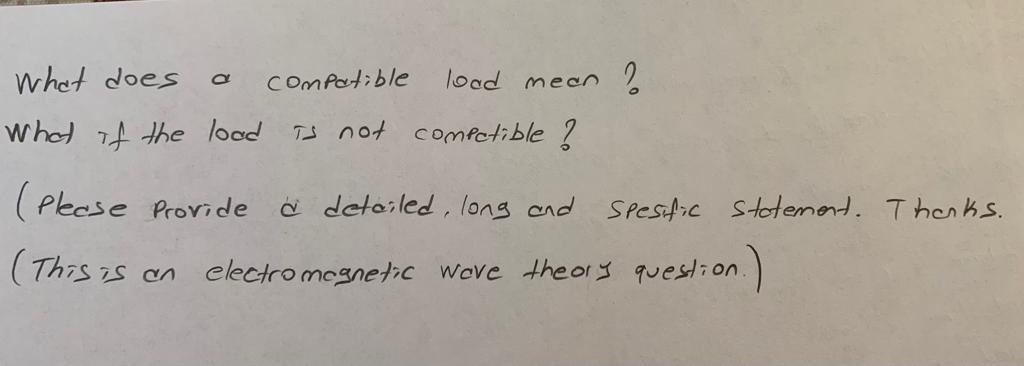 What does a compatible load mean ?
What if the load is not compatible ?
(Please Provide a detailed, long and Spesific Statement. Thanks.
(This is an electromagnetic wave theory question.)